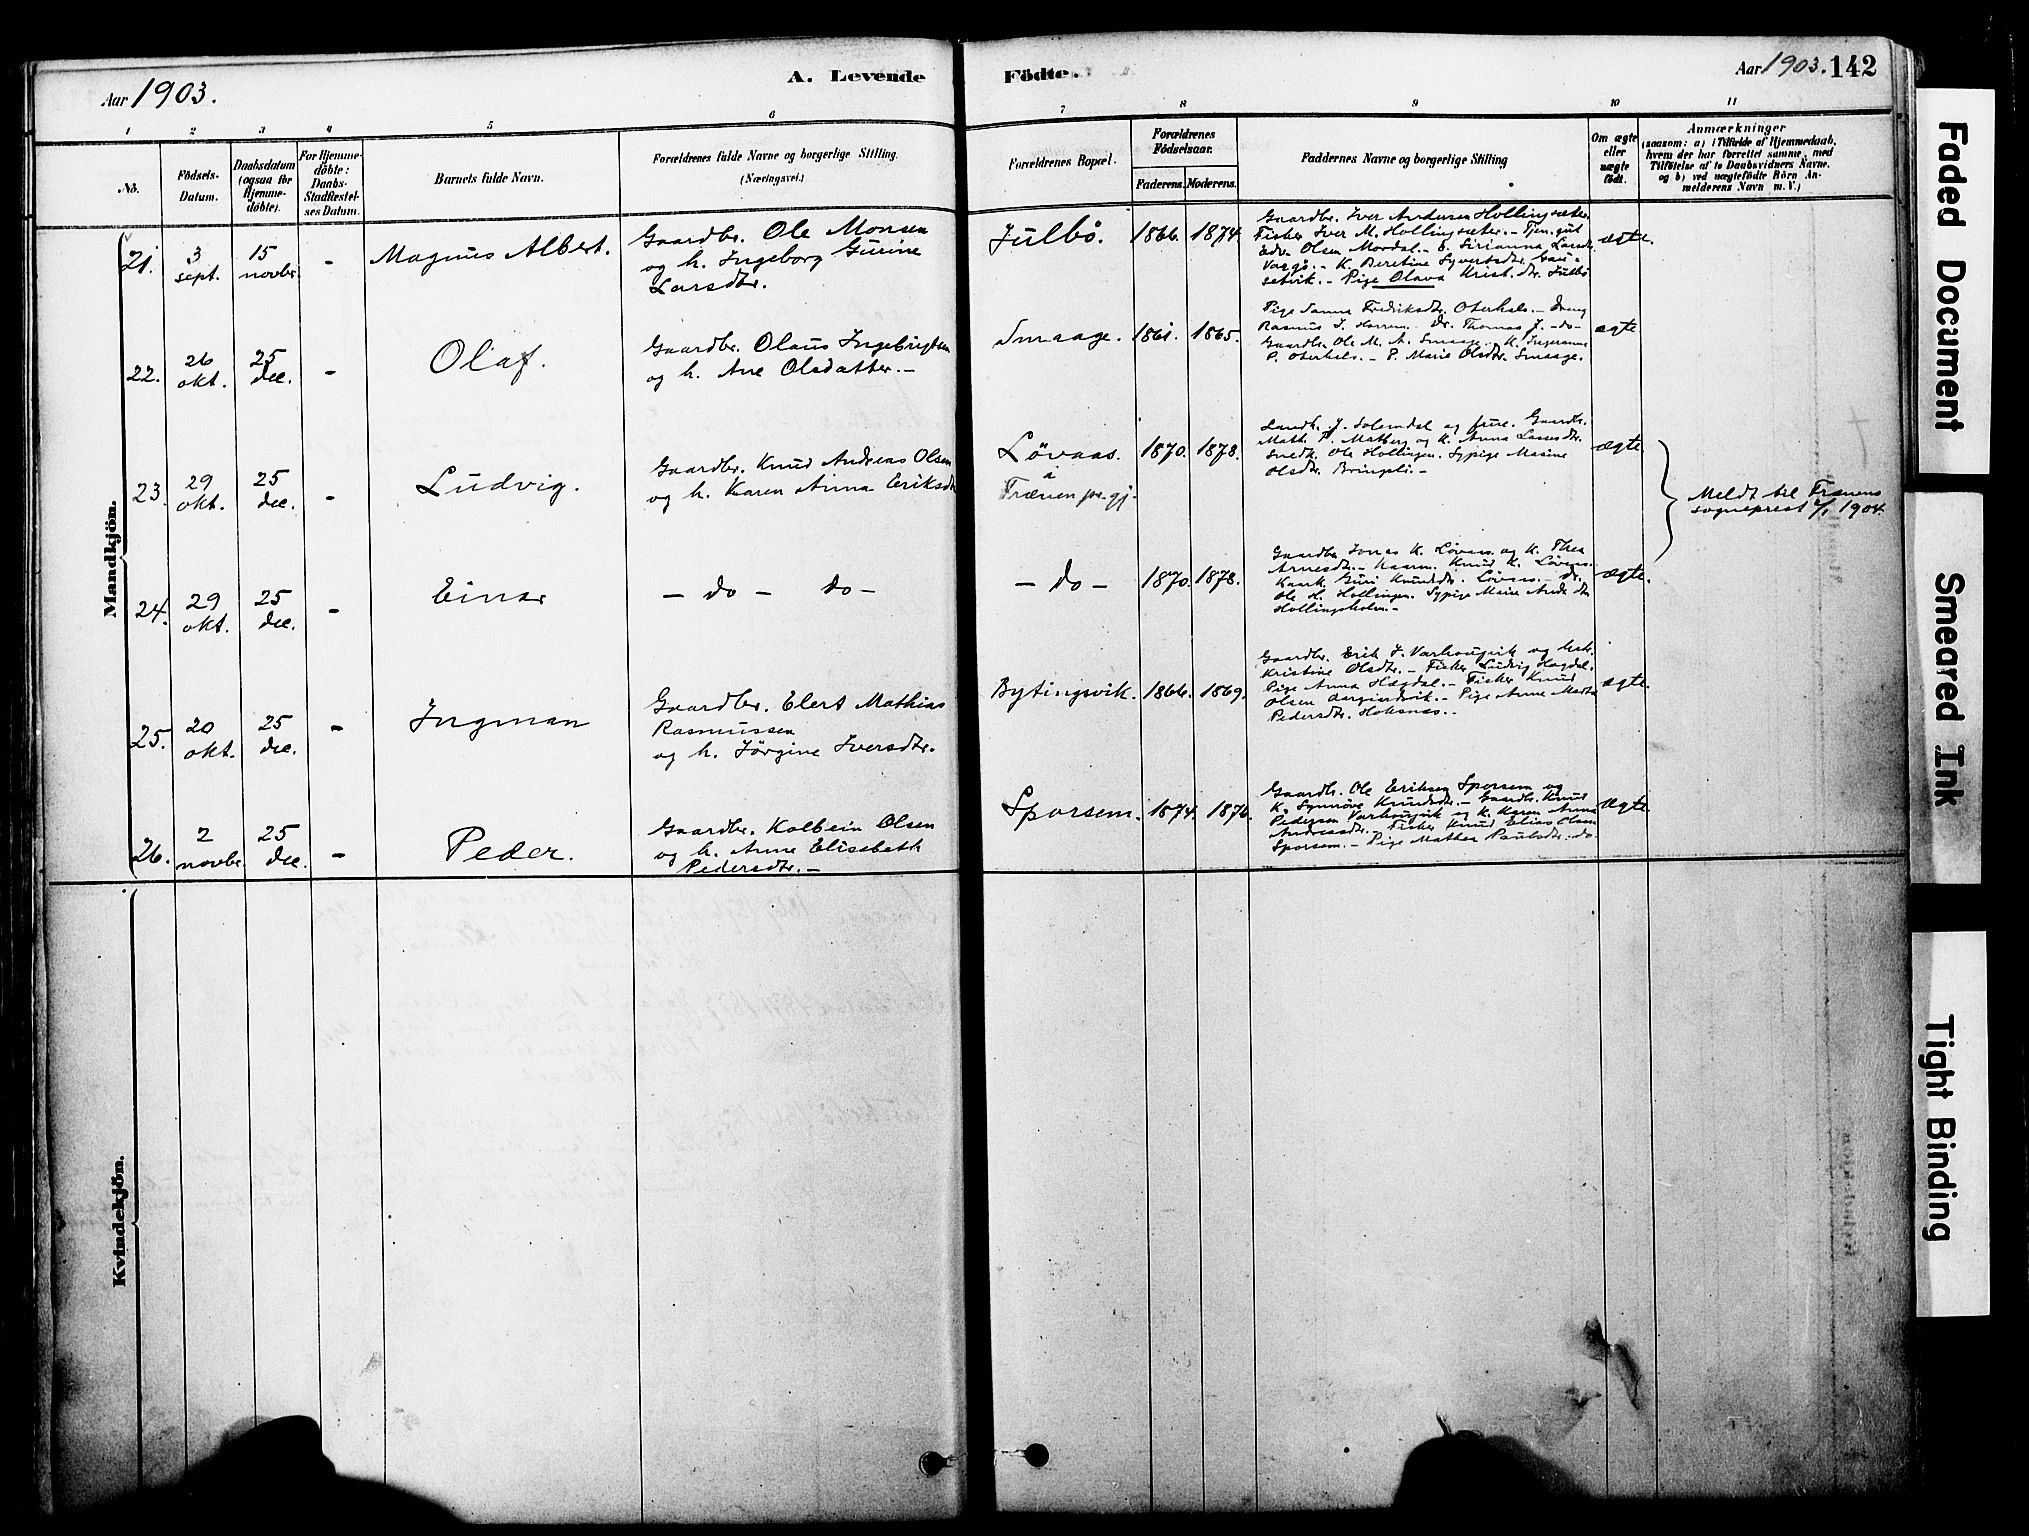 Aar 1903.
A. Levende
Födte.
Aar 1903. 142
1 2 3 4 5 6 7 8 9 10 11
No.
Födsels-
Datum.
Daabsdatum
(ogsaa for
Hjemme-
döbte).
For Hjemme-
döbte:
Daabs-
Stadfæstel-
ses Datum.
Barnets fulde Navn.
Forældrenes fulde Navne og borgerlige Stilling.
(Næringsvei.)
Forældrenes Bopæl.
Forældrenes
Födselsaar.
Faderens. Moderens.
Faddernes Navne og borgerlige Stilling
Om ægte
eller
uægte
født.
Anmærkninger
(saasom: a) i Tilfælde af Hjemmedaab,
hvem der har forrettet samme, med
Tilføielse af to Daabsvidners Navne,
og b) ved uægtefödte Börn An-
melderens Navn m. V.)
Mandkjön.
21. 3 sept. 15 novbr. - Magnus Albert.
Gaardbr. Ole Monsen
og h. Ingeborg Gurine
Larsdtr.
Julbö. 1866. 1874.
Gaardbr. Iver Andersen Hollingsæter.
Fisker Iver M. Hollingsæter. - Tjen.gut
Edv. Olsen Mordal. - E. Sirianna Larsdtr.
Vaagö. - K. Beretine Syvertsdtr. Gaus-
setvik. - Pige Olava Krist.dtr. Julbö
ægte.
22. 26 okt. 25 dec. - Olaf.
Gaardbr. Olaus Ingebrigtsen
og h. Ane Olsdatter. -
Smaage. 1861. 1865.
Pige Sanna Fredriksdtr. Oterhals. - Dreng
Rasmus J. Harrem. - Dr. Thomas J. -do-
Gaardbr. Ole M. A. Smaage. - K. Ingeranna
P. Oterhals. - P. Marie Olsdtr. Smaage.
ægte
23. 29 okt. 25 dec. - Ludvig.
Gaardbr. Knud Andreas Olsen
og h. Karen Anna Eriksdtr
Lövaas.
i
Frænen pr.gj.
1870. 1878.
Landh. J. Solemdal og frue. Gaardbr.
Math. P. Malberg og K. Anna Lassesdtr.
Snedk. Ole Hollingen. Sypige Masine
Olsdtr. Bringsli. -
ægte.
Meldt til Frænens
sogneprest 2/1 1904.
24. 29 okt. 25 dec. - Einar
- do - do -
- do - 1870. 1878.
Gaardbr. Jonas K. Lövaas. og K. Thea
Arnesdtr. - Knud K. Lövaas.
Guri Knudsdtr. Lövaas. - Dr.
Ole H. Hollingen. Sypige
Hollingsholm. -
ægte.
25. 20 okt. 25 dec. - Ingman
Gaardbr. Elert Mathias
Rasmussen
og h. Jörgine Iversdtr.
Bytingsvik. 1866. 1869.
Gaardbr. Erik J. Varhougvik og hstr.
Kristine Olsdtr. - Fisker Ludvig Hagdal.
Pige Anna Hagdal. - Fisker Knud
Olsen - Pige Anne Marta
Pedersdtr. Hoksnes. -
ægte.
26. 2 novbr. 25 dec. - Peder.
Gaardbr. Kolbein Olsen
og h. Anne Elisabeth
Pedersdtr. -
Sporsem. 1874. 1876.
Gaardbr. Ole Eriksen Sporsem og
K. Synnöve Knudsdtr. - Gaardbr. Knud
Pedersen Varhougvik og K. Karen Anna
Andreasdtr. Fisker Knud Elias Olsen
Sporsem. - Pige Mathea Paulsdtr. do.
ægte.
Kvindekjön.
Faded Document
Smeared Ink
Tight Binding